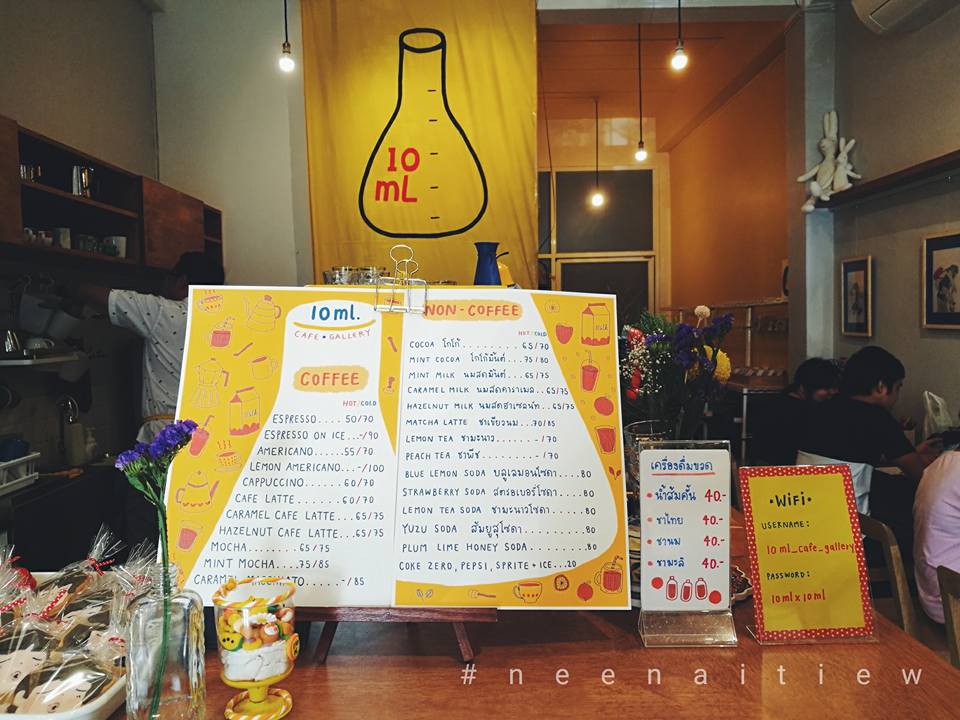 10
mL
10 ml.
CAFE • GALLERY
COFFEE
HOT/COLD
ESPRESSO.... 50/70
ESPRESSO ON ICE...-/90
AMERICANO.....55/70
LEMON AMERICANO...-/100
CAPPUCCINO......60/70
CAFE LATTE....60/70
CARAMEL CAFE LATTE...65/75
HAZELNUT CAFE LATTE..65/75
MOCHA........65/75
MINT MOCHA....75/85
-/85
NON-COFFEE
HOT/COLD
COCOA โกโก้.......... 65/70
MINT COCOA โกโก้มินต์...75/80
MINT MILK นมสดมินต์.... 65/75
CARAMEL MILK นมสดคาราเมล..65/75
HAZELNUT MILK นมสดฮาเซลนัท..65/75
MATCHA LATTE ชาเขียวนม...70/85
LEMON TEA ชามะนาว.......-/70
PEACH TEA ชาพีช.........-/70
BLUE LEMON SODA บลูเลมอนโซดา......80
STRAWBERRY SODA สตรอเบอร์โซดา.....80
LEMON TEA SODA ชามะนาวโซดา.....80
YUZU SODA ส้มยูสุโซดา...........80
PLUM LIME HONEY SODA..........80
COKE ZERO, PEPSI, SPRITE + ICE...20
เครื่องดื่มขวด
• น้ำส้มคั้น 40.-
• ชาไทย 40.-
• ชานม 40.-
• ชามะลิ 40.-
•WiFi•
USERNAME:
10 ml_cafe_gallery
PASSWORD:
10mlx10ml
#neenaitiew